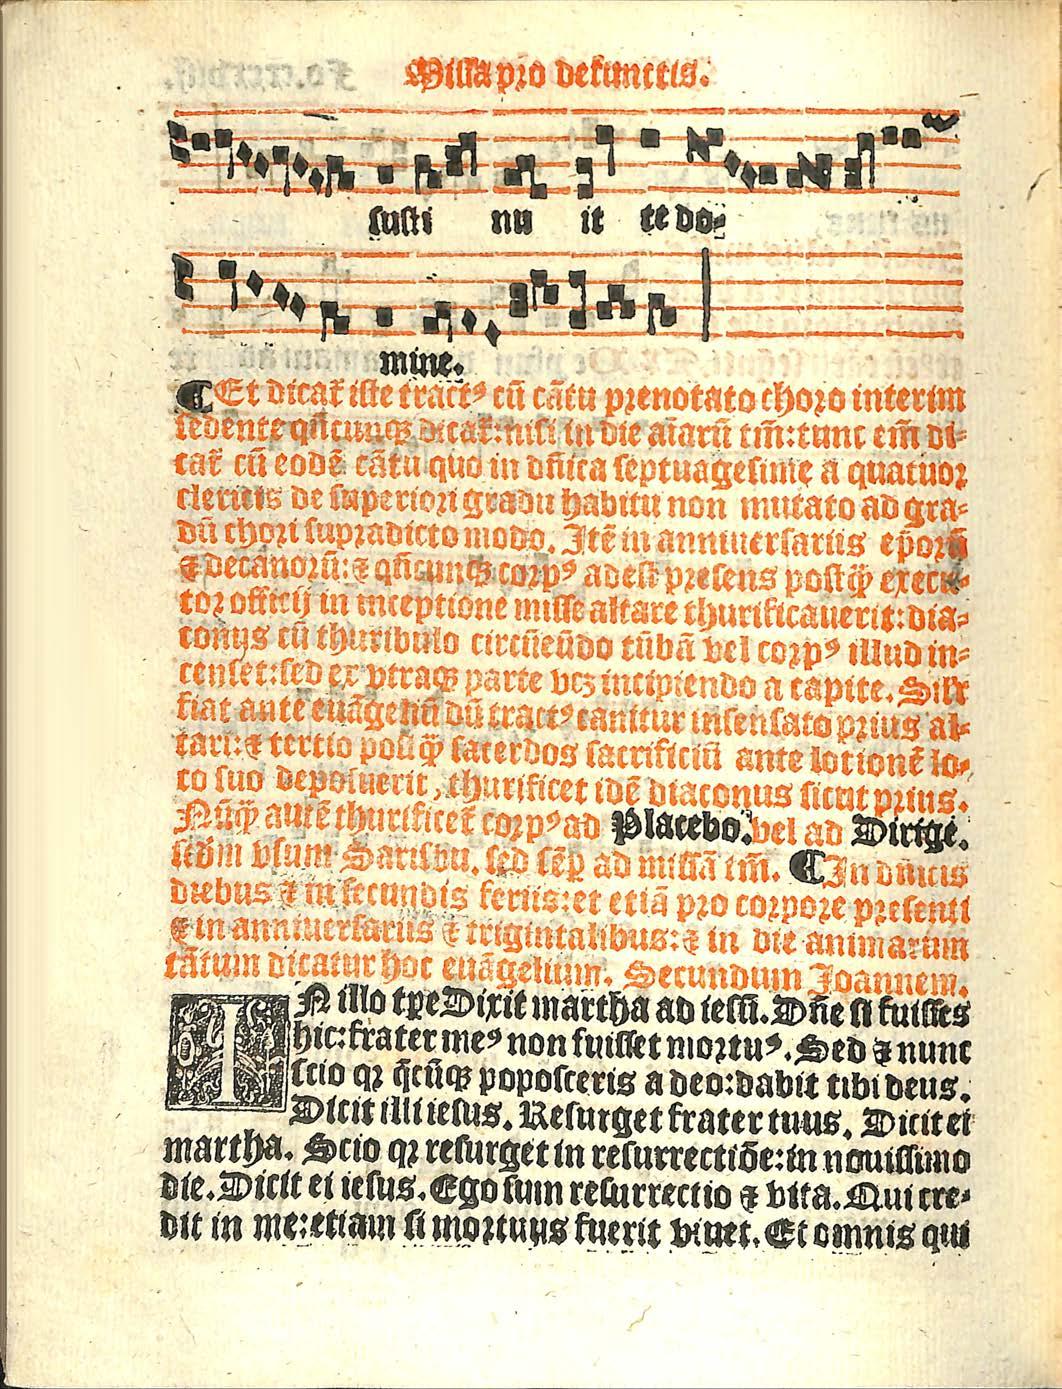 Missa pro defunctis.
susti nu it te do-
mine.
¶Et dicat̃ iste tractꝰ cũ cãtu prenotato choro interim
sedente qñcunqꝫ dicat̃:nisi in die aĩarũ tm̃:tunc em̃ di-
cat̃ cũ eodẽ cãtu quo in dñica septuagesime a quatuor
clericis de superiori gradu habitu non mutato ad gra-
dũ chori supradicto modo. Itẽ in anniuersariis ep̃orũ
⁊ decanorũ:⁊ qñcunqꝫ corpꝰ adest presens postq̃ʒ execu-
tor officij in inceptione misse altare thurificauerit:dia-
conus cũ thuribulo circũeũdo tũbã vel corpꝰ illud in-
censet:sed ex vtraqꝫ parte vcꝫ incipiendo a capite. Silr̃
fiat ante euãgeliũ dũ tractꝰ canitur insensato prius al-
tari:⁊ tertio postq̃ʒ sacerdos sacrificiũ ante lotionẽ lo-
co suo deposuerit, thurificet idẽ diaconus sicut prius.
Nũq̃ʒ autẽ thurificet̃ corpꝰ ad Placebo. vel ad Dirige.
scd̃m vsum Sarisbu. sed sẽꝑ ad missã tm̃. ¶In dñicis
diebus ⁊ in secundis feriis:et etiã pro corpore presenti
⁊ in anniuersariis ⁊ trigintalibus:⁊ in die animarum
tãtum dicatur hoc euãgelium. Secundum Joannem.
IN illo tꝑe Dixit martha ad iesũ. Dñe si fuisses
hic:frater meꝰ non fuisset mortuꝰ. Sed ⁊ nunc
scio qꝛ q̃cũqꝫ poposceris a deo:dabit tibi deus.
Dicit illi iesus. Resurget frater tuus. Dicit ei
martha. Scio qꝛ resurget in resurrectiõe:in nouissimo
die. Dicit ei iesus. Ego sum resurrectio ⁊ vita. Qui cre-
dit in me:etiam si mortuus fuerit viuet. Et omnis qui